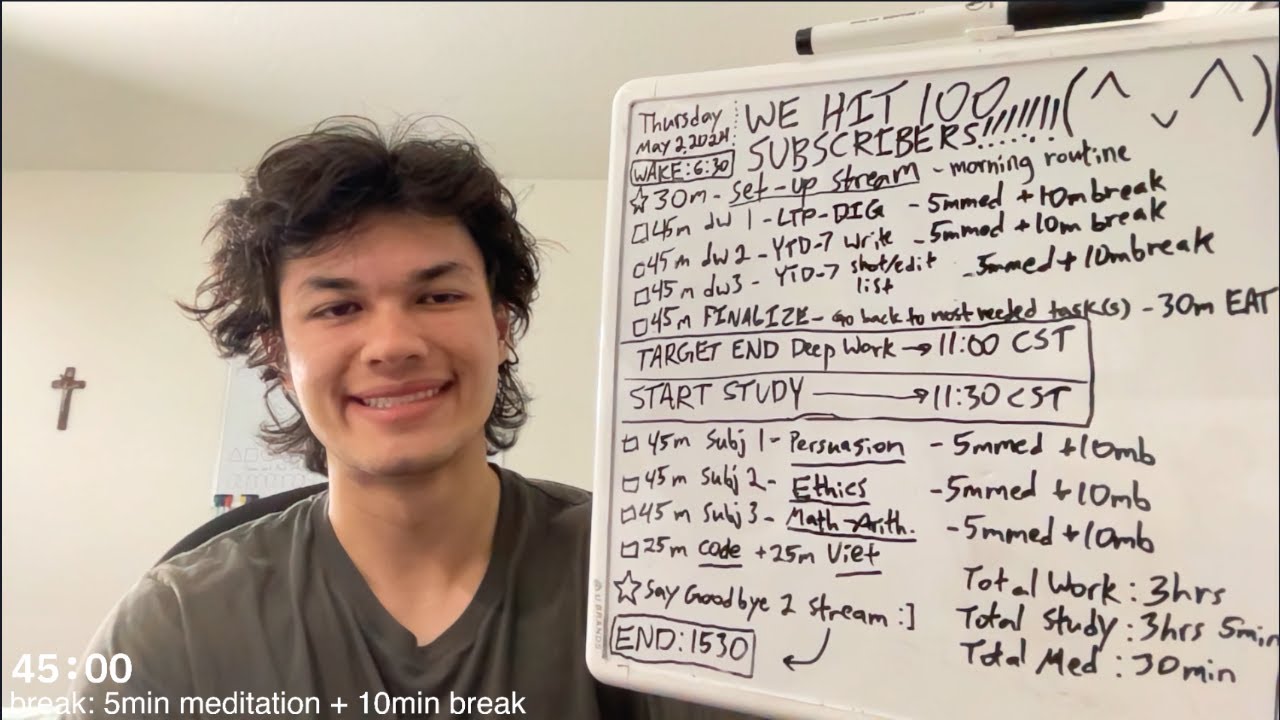 Thursday
May 2, 2024
WAKE: 6:30
WE HIT 100
SUBSCRIBERS!!!!!!!(^ ᴗ ^)
☆ 30m - set-up stream - morning routine
□ 45m dw 1 - LTP-DIG - 5mmed + 10m break
□ 45m dw 2 - YTD-7 write - 5mmed + 10m break
□ 45m dw3 - YTD-7 shot/edit list - 5mmed + 10mbreak
□ 45m FINALIZE - Go back to most needed task(s) - 30m EAT
TARGET END Deep Work → 11:00 CST
START STUDY → 11:30 CST
□ 45m Subj 1 - Persuasion - 5mmed + 10mb
□ 45m Subj 2 - Ethics - 5mmed + 10mb
□ 45m Subj 3 - Math-Arith. - 5mmed + 10mb
□ 25m code + 25m Viet
☆ Say Goodbye 2 stream :]
END: 1530
Total Work: 3hrs
Total Study: 3hrs 5min
Total Med: 30min
QUBRANDS
45:00
break: 5min meditation + 10min break